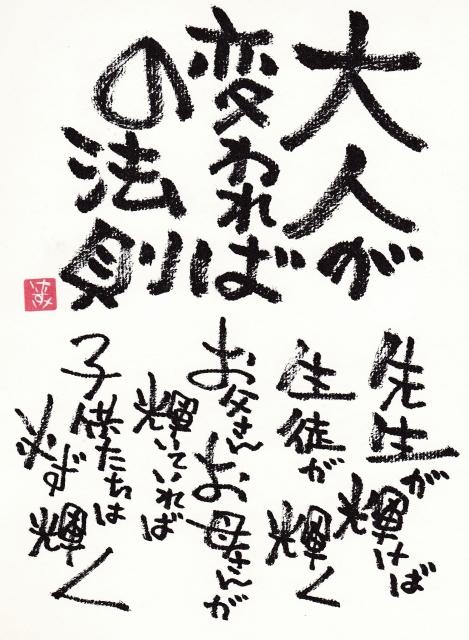 大人が
変われば
の法則
先生が輝けば
生徒が輝く
お父さんお母さんが
輝いていれば
子供たちは
必ず輝く